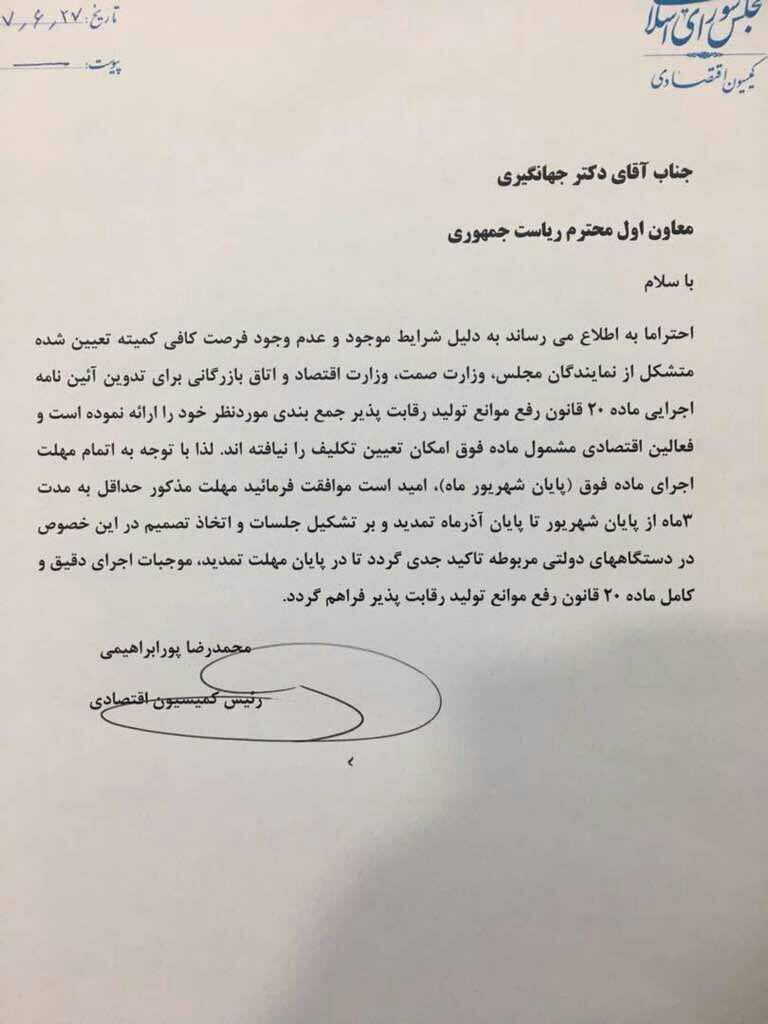 مجلس شورای اسلامی
کمیسیون اقتصادی
تاریخ: ۷/۶/۲۷
پیوست:
جناب آقای دکتر جهانگیری
معاون اول محترم ریاست جمهوری
با سلام
احتراما به اطلاع می رساند به دلیل شرایط موجود و عدم وجود فرصت کافی کمیته تعیین شده
متشکل از نمایندگان مجلس، وزارت صمت، وزارت اقتصاد و اتاق بازرگانی برای تدوین آئین نامه
اجرایی ماده ۲۰ قانون رفع موانع تولید رقابت پذیر جمع بندی موردنظر خود را ارائه نموده است و
فعالین اقتصادی مشمول ماده فوق امکان تعیین تکلیف را نیافته اند. لذا با توجه به اتمام مهلت
اجرای ماده فوق (پایان شهریور ماه)، امید است موافقت فرمائید مهلت مذکور حداقل به مدت
۳ماه از پایان شهریور تا پایان آذرماه تمدید و بر تشکیل جلسات و اتخاذ تصمیم در این خصوص
در دستگاههای دولتی مربوطه تاکید جدی گردد تا در پایان مهلت تمدید، موجبات اجرای دقیق و
کامل ماده ۲۰ قانون رفع موانع تولید رقابت پذیر فراهم گردد.
محمدرضا پورابراهیمی
رئیس کمیسیون اقتصادی